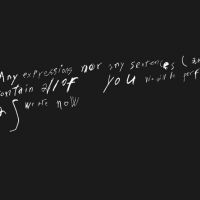 Any expressions nor any sentences (
contain all of you would be perf
we are now